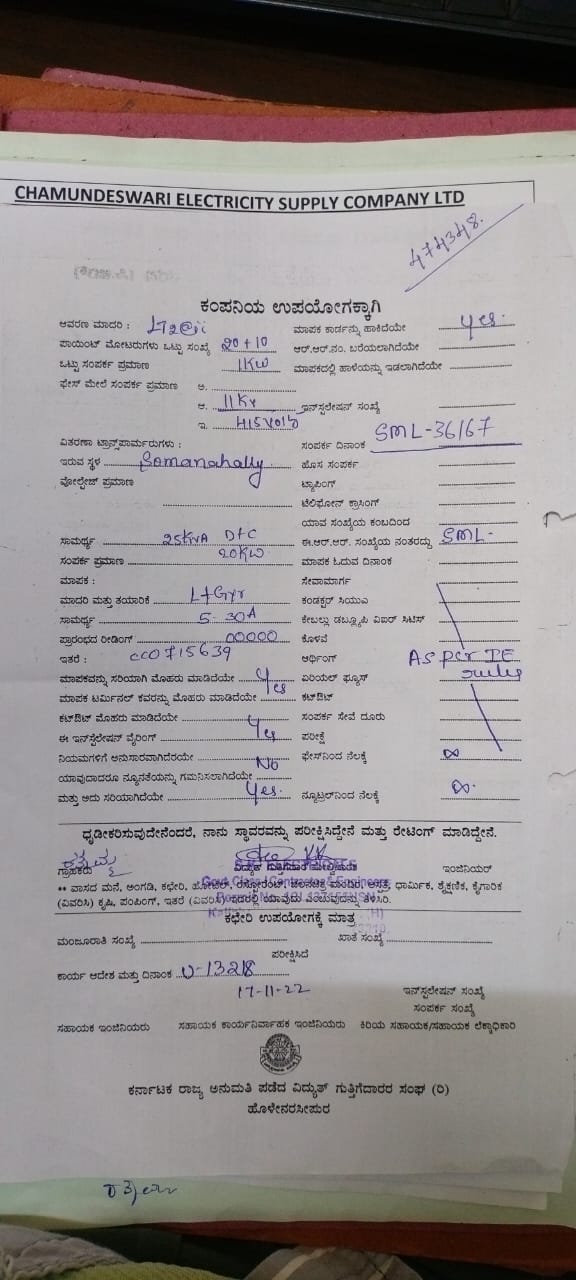 CHAMUNDESWARI ELECTRICITY SUPPLY COMPANY LTD
474348.
ಕಂಪನಿಯ ಉಪಯೋಗಕ್ಕಾಗಿ
ಆವರಣ ಮಾದರಿ : ಮಾಪಕ ಕಾರ್ಡನ್ನು ಹಾಕಿದೆಯೇ Yes.
ಪಾಯಿಂಟ್ ಮೋಟರುಗಳು ಒಟ್ಟು ಸಂಖ್ಯೆ 20+10 ಆರ್.ಆರ್.ನಂ. ಬರೆಯಲಾಗಿದೆಯೇ
ಒಟ್ಟು ಸಂಪರ್ಕ ಪ್ರಮಾಣ 1KW ಮಾಪಕದಲ್ಲಿ ಹಾಳೆಯನ್ನು ಇಡಲಾಗಿದೆಯೇ
ಫೇಸ್ ಮೇಲೆ ಸಂಪರ್ಕ ಪ್ರಮಾಣ ಅ.
ಆ. 11KV ಇನ್‌ಸ್ಟಲೇಷನ್ ಸಂಖ್ಯೆ
ಇ. 415Volt
ವಿತರಣಾ ಟ್ರಾನ್ಸ್‌ಪಾರ್ಮರುಗಳು : ಸಂಪರ್ಕ ದಿನಾಂಕ SML-36167
ಇರುವ ಸ್ಥಳ Somanahally ಹೊಸ ಸಂಪರ್ಕ
ವೋಲ್ಟೇಜ್ ಪ್ರಮಾಣ ಟ್ಯಾಪಿಂಗ್
ಟೆಲಿಫೋನ್ ಕ್ರಾಸಿಂಗ್
ಯಾವ ಸಂಖ್ಯೆಯ ಕಂಬದಿಂದ
ಸಾಮರ್ಥ್ಯ 25KVA DTC ಈ.ಆರ್.ಆರ್. ಸಂಖ್ಯೆಯ ನಂತರದ್ದು SML-
ಸಂಪರ್ಕ ಪ್ರಮಾಣ 20KW ಮಾಪಕ ಓದುವ ದಿನಾಂಕ
ಮಾಪಕ : ಸೇವಾಮಾರ್ಗ
ಮಾದರಿ ಮತ್ತು ತಯಾರಿಕೆ L+Gyr ಕಂಡಕ್ಟರ್ ಸಿಯುಎ
ಸಾಮರ್ಥ್ಯ 5-30A ಕೇಬಲ್ಲು ಡಬ್ಲ್ಯೂಪಿ ವಿಐರ್ ಸಿಟಿಸ್
ಪ್ರಾರಂಭದ ರೀಡಿಂಗ್ 00000 ಕೊಳವೆ
ಇತರೆ : CC0715639 ಆರ್ಥಿಂಗ್ As per IE rules
ಮಾಪಕವನ್ನು ಸರಿಯಾಗಿ ಮೊಹರು ಮಾಡಿದೆಯೇ Yes ಏರಿಯಲ್ ಫ್ಯೂಸ್
ಮಾಪಕ ಟರ್ಮಿನಲ್ ಕವರನ್ನು ಮೊಹರು ಮಾಡಿದೆಯೇ ಕಟ್‌ಔಟ್
ಕಟ್‌ಔಟ್ ಮೊಹರು ಮಾಡಿದೆಯೇ ಸಂಪರ್ಕ ಸೇವೆ ದೂರು
ಈ ಇನ್‌ಸ್ಟಲೇಷನ್ ವೈರಿಂಗ್ Yes ಪರೀಕ್ಷೆ
ನಿಯಮಗಳಿಗೆ ಅನುಸಾರವಾಗಿದೆರಯೇ ಫೇಸ್‌ನಿಂದ ನೆಲಕ್ಕೆ ∞
ಯಾವುದಾದರೂ ನ್ಯೂನತೆಯನ್ನು ಗಮನಿಸಲಾಗಿದೆಯೇ No
ಮತ್ತು ಅದು ಸರಿಯಾಗಿದೆಯೇ Yes. ನ್ಯೂಟ್ರಲ್‌ನಿಂದ ನೆಲಕ್ಕೆ ∞.
ಧೃಡೀಕರಿಸುವುದೇನೆಂದರೆ, ನಾನು ಸ್ಥಾವರವನ್ನು ಪರೀಕ್ಷಿಸಿದ್ದೇನೆ ಮತ್ತು ರೇಟಿಂಗ್ ಮಾಡಿದ್ದೇನೆ.
ಗ್ರಾಹಕರು ಇಂಜಿನಿಯರ್
Govt. Class I Contractor & Engineers
** ವಾಸದ ಮನೆ, ಅಂಗಡಿ, ಕಛೇರಿ, ಹೋಟೆಲ್, ರೆಸ್ಟೋರೆಂಟ್, ಚಲನಚಿತ್ರ ಮಂದಿರ, ಆಸ್ಪತ್ರೆ, ಧಾರ್ಮಿಕ, ಶೈಕ್ಷಣಿಕ, ಕೈಗಾರಿಕ
(ವಿವರಿಸಿ) ಕೃಷಿ, ಪಂಪಿಂಗ್, ಇತರೆ (ವಿವರಿಸಿ) ಇದರಲ್ಲಿ ಯಾವುದು ಎಂಬುವುದನ್ನು ತಿಳಿಸಿರಿ.
ಕಛೇರಿ ಉಪಯೋಗಕ್ಕೆ ಮಾತ್ರ
ಮಂಜೂರಾತಿ ಸಂಖ್ಯೆ ಖಾತೆ ಸಂಖ್ಯೆ
ಪರೀಕ್ಷಿಸಿದೆ
ಕಾರ್ಯ ಆದೇಶ ಮತ್ತು ದಿನಾಂಕ U-13218
17-11-22 ಇನ್‌ಸ್ಟಲೇಷನ್ ಸಂಖ್ಯೆ
ಸಂಪರ್ಕ ಸಂಖ್ಯೆ
ಸಹಾಯಕ ಇಂಜಿನಿಯರು ಸಹಾಯಕ ಕಾರ್ಯನಿರ್ವಾಹಕ ಇಂಜಿನಿಯರು ಕಿರಿಯ ಸಹಾಯಕ/ಸಹಾಯಕ ಲೆಕ್ಕಾಧಿಕಾರಿ
ಕರ್ನಾಟಕ ರಾಜ್ಯ ಅನುಮತಿ ಪಡೆದ ವಿದ್ಯುತ್ ಗುತ್ತಿಗೆದಾರರ ಸಂಘ (ರಿ)
ಹೊಳೇನರಸೀಪುರ